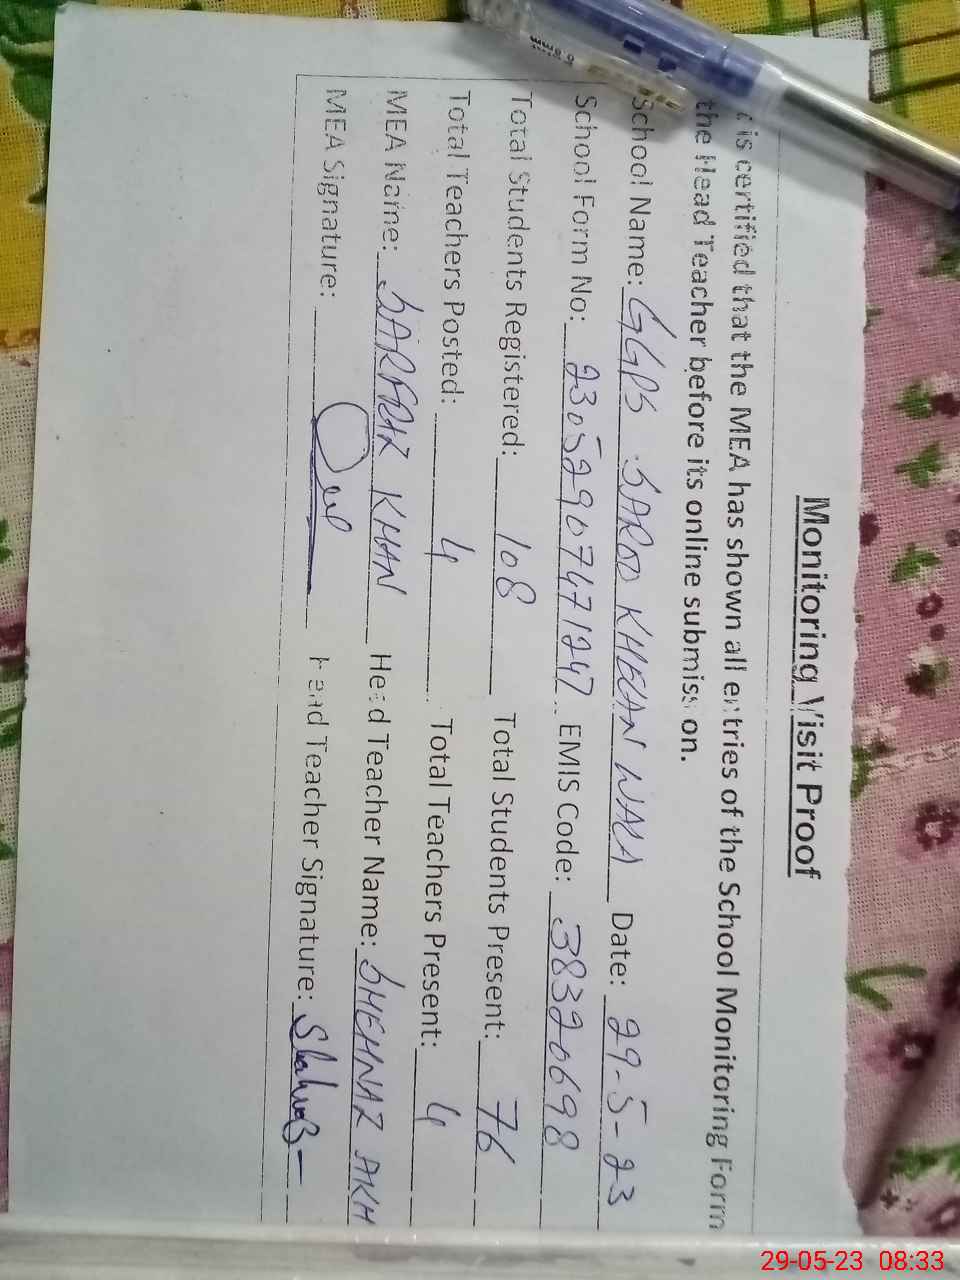 Monitoring Visit Proof
is certified that the MEA has shown all entries of the School Monitoring Form
the Head Teacher before its online submission.
School Name: GGPS SAROO KHELAN WALA Date: 29-5-23
School Form No: 23052907471247 EMIS Code: 38320698
Total Students Registered: 108 Total Students Present: 76
Total Teachers Posted: 4 Total Teachers Present: 4
MEA Name: KHAN Head Teacher Name: SHEHNAZ AKH
MEA Signature: Head Teacher Signature:
29-05-23 08:33